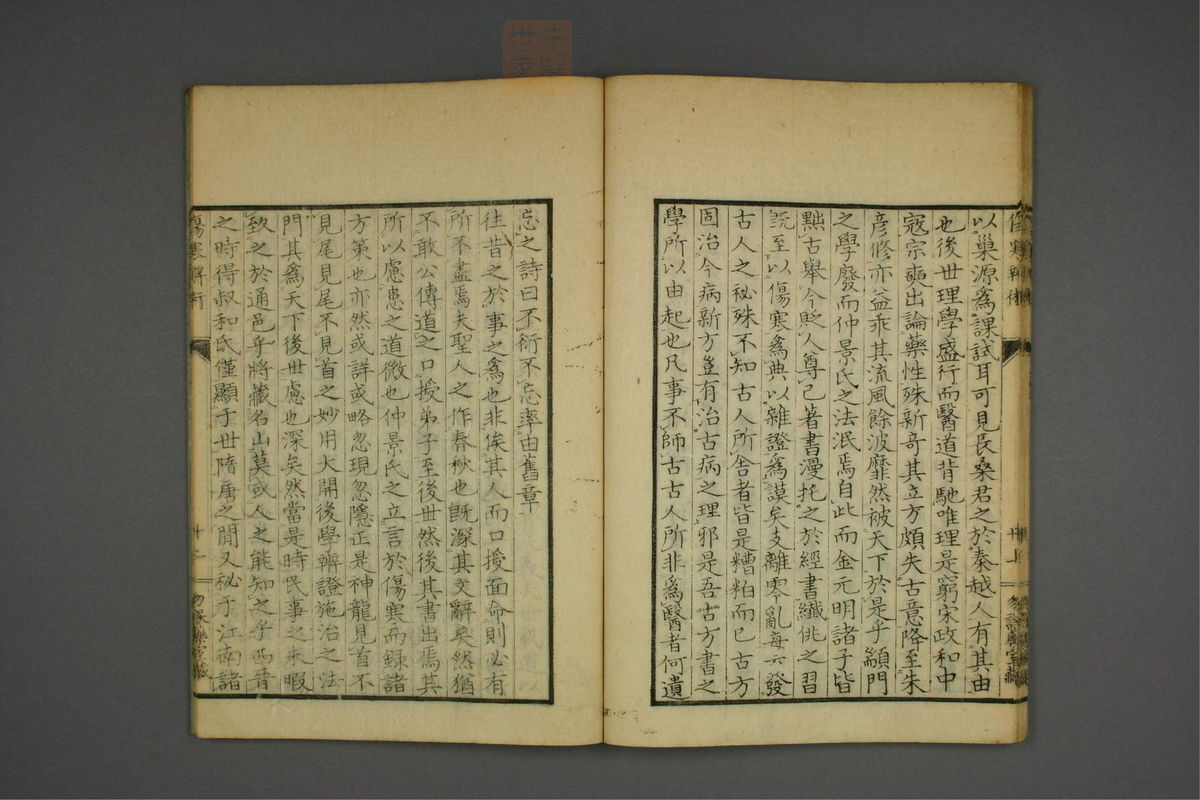 以巢源爲課試耳可見長桑君之於秦越人有其由
也後世理學盛行而醫道背馳唯理是窮宋政和中
寇宗奭出論藥性殊新奇其立方頗失古意降至朱
彦修亦益乖其流風餘波靡然被天下於是乎顓門
之學廢而仲景氏之法泯焉自此而金元明諸子皆
點古舉今貶人尊己著書漫托之於經書纖佻之習
説至以傷寒爲典以雜證爲謨矣支離零亂每々發
古人之秘殊不知古人所舍者皆是糟粕而已古方
固治今病新方豈有治古病之理邪是吾古方書之
學所以由起也凡事不師古古人所非爲醫者何遺
忘之詩曰不衍不忘率由舊章
往昔之於事之爲也非俟其人而口授面命則必有
所不盡焉夫聖人之作春秋也既深其文辭矣然猶
不敢公傳道之口授弟子至後世然後其書出焉其
所以慮患之道微也仲景氏之立言於傷寒而録諸
方策也亦然或詳或略忽現忽隱正是神龍見首不
見尾見尾不見首之妙用大開後學辨證施治之法
門其爲天下後世慮也深矣然當是時民事之未暇
致之於通邑乎將藏名山莫或人之能知之乎西晉
之時得叔和氏僅顯于世隋唐之間又秘于江南諸
傷寒辨術